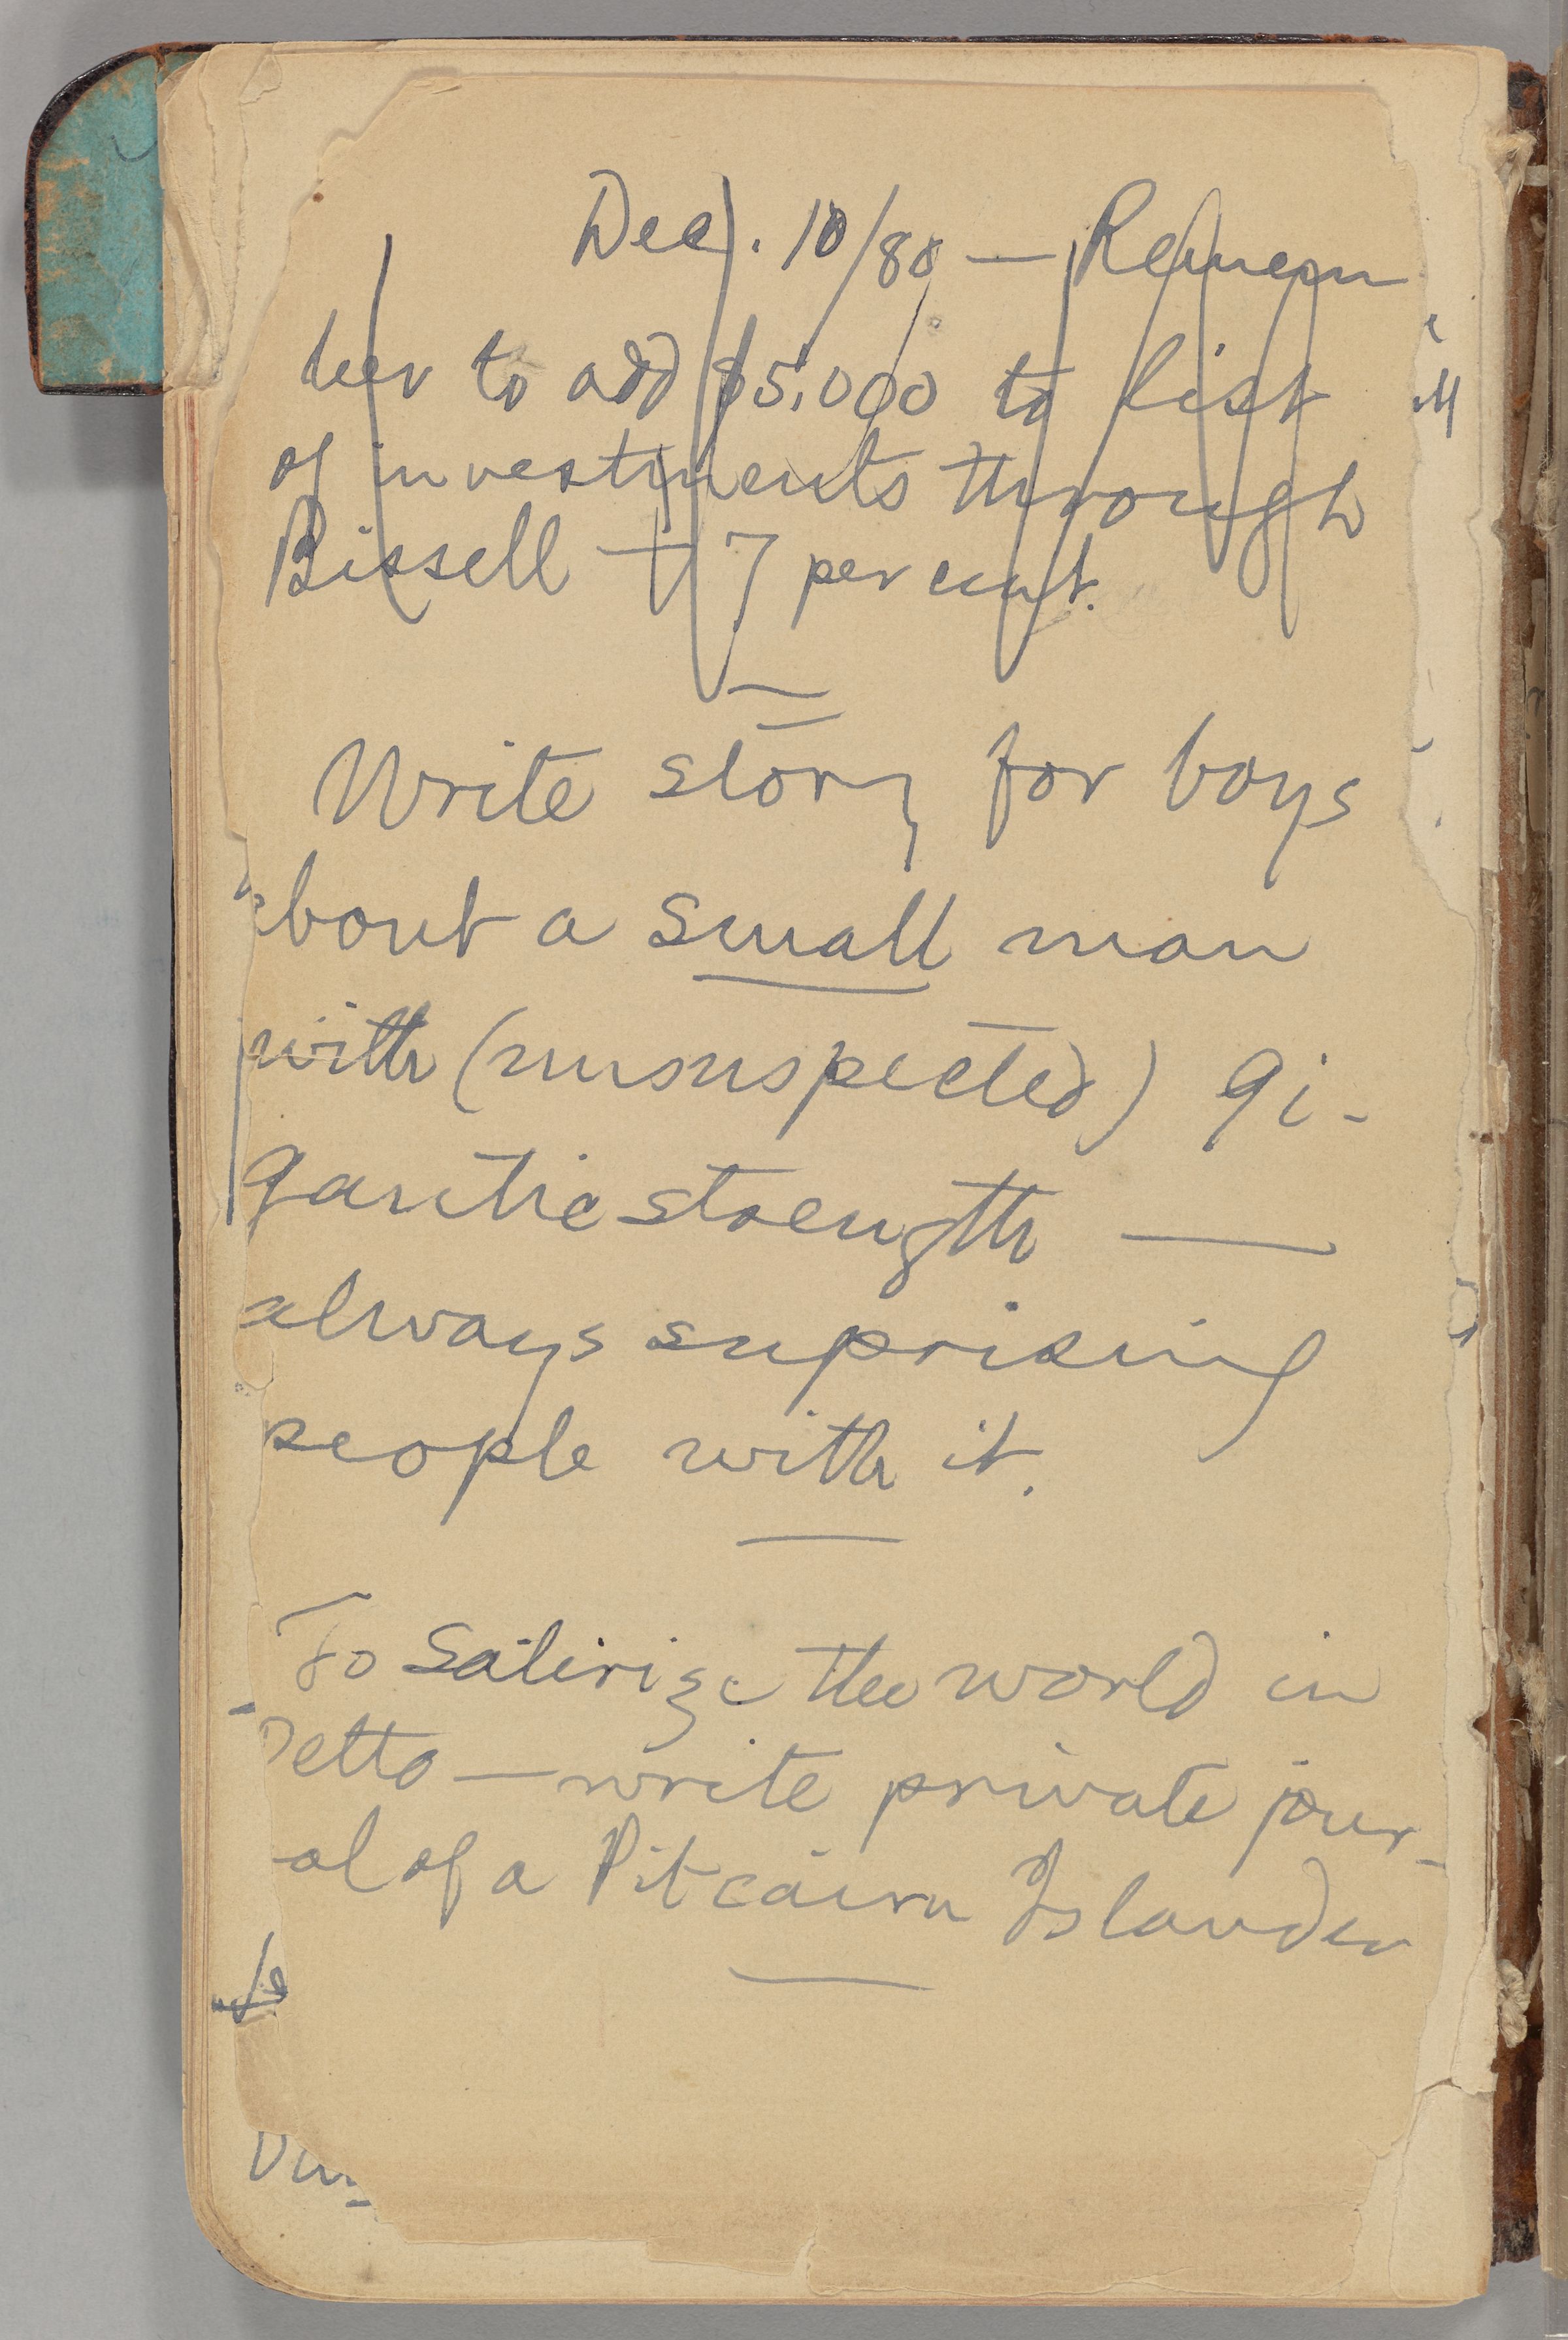 Dec. 10/80 — Remem
ber to add $5,000 to list
of investments through
Bissell + 7 per cent.
Write story for boys
about a small man
with (unsuspected) gi-
gantic strength —
always suprising
people with it.
To Satirize the world in
petto — write private jour-
al of a Pitcairn Islander